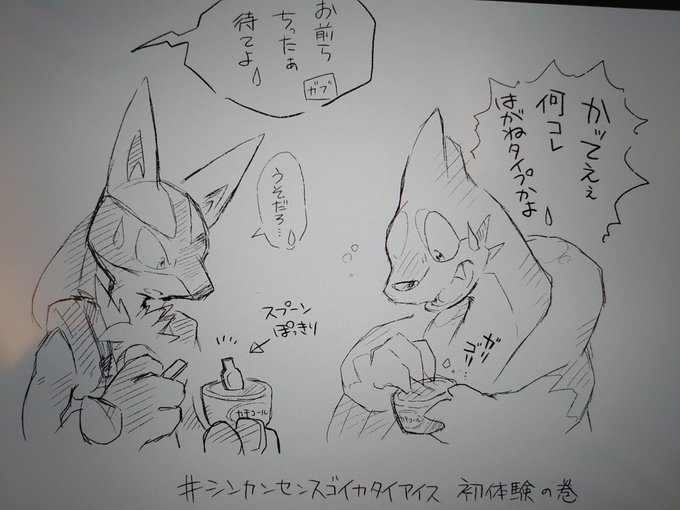 お前ら
ちったぁ
待てよ
ガブ
かってえぇ
何コレ
はがねタイプかよ
うそだろ…
スプーン
ぽっきり
ガリゴリ
カチコール
カチコール
#シンカンセンスゴイカタイアイス 初体験の巻